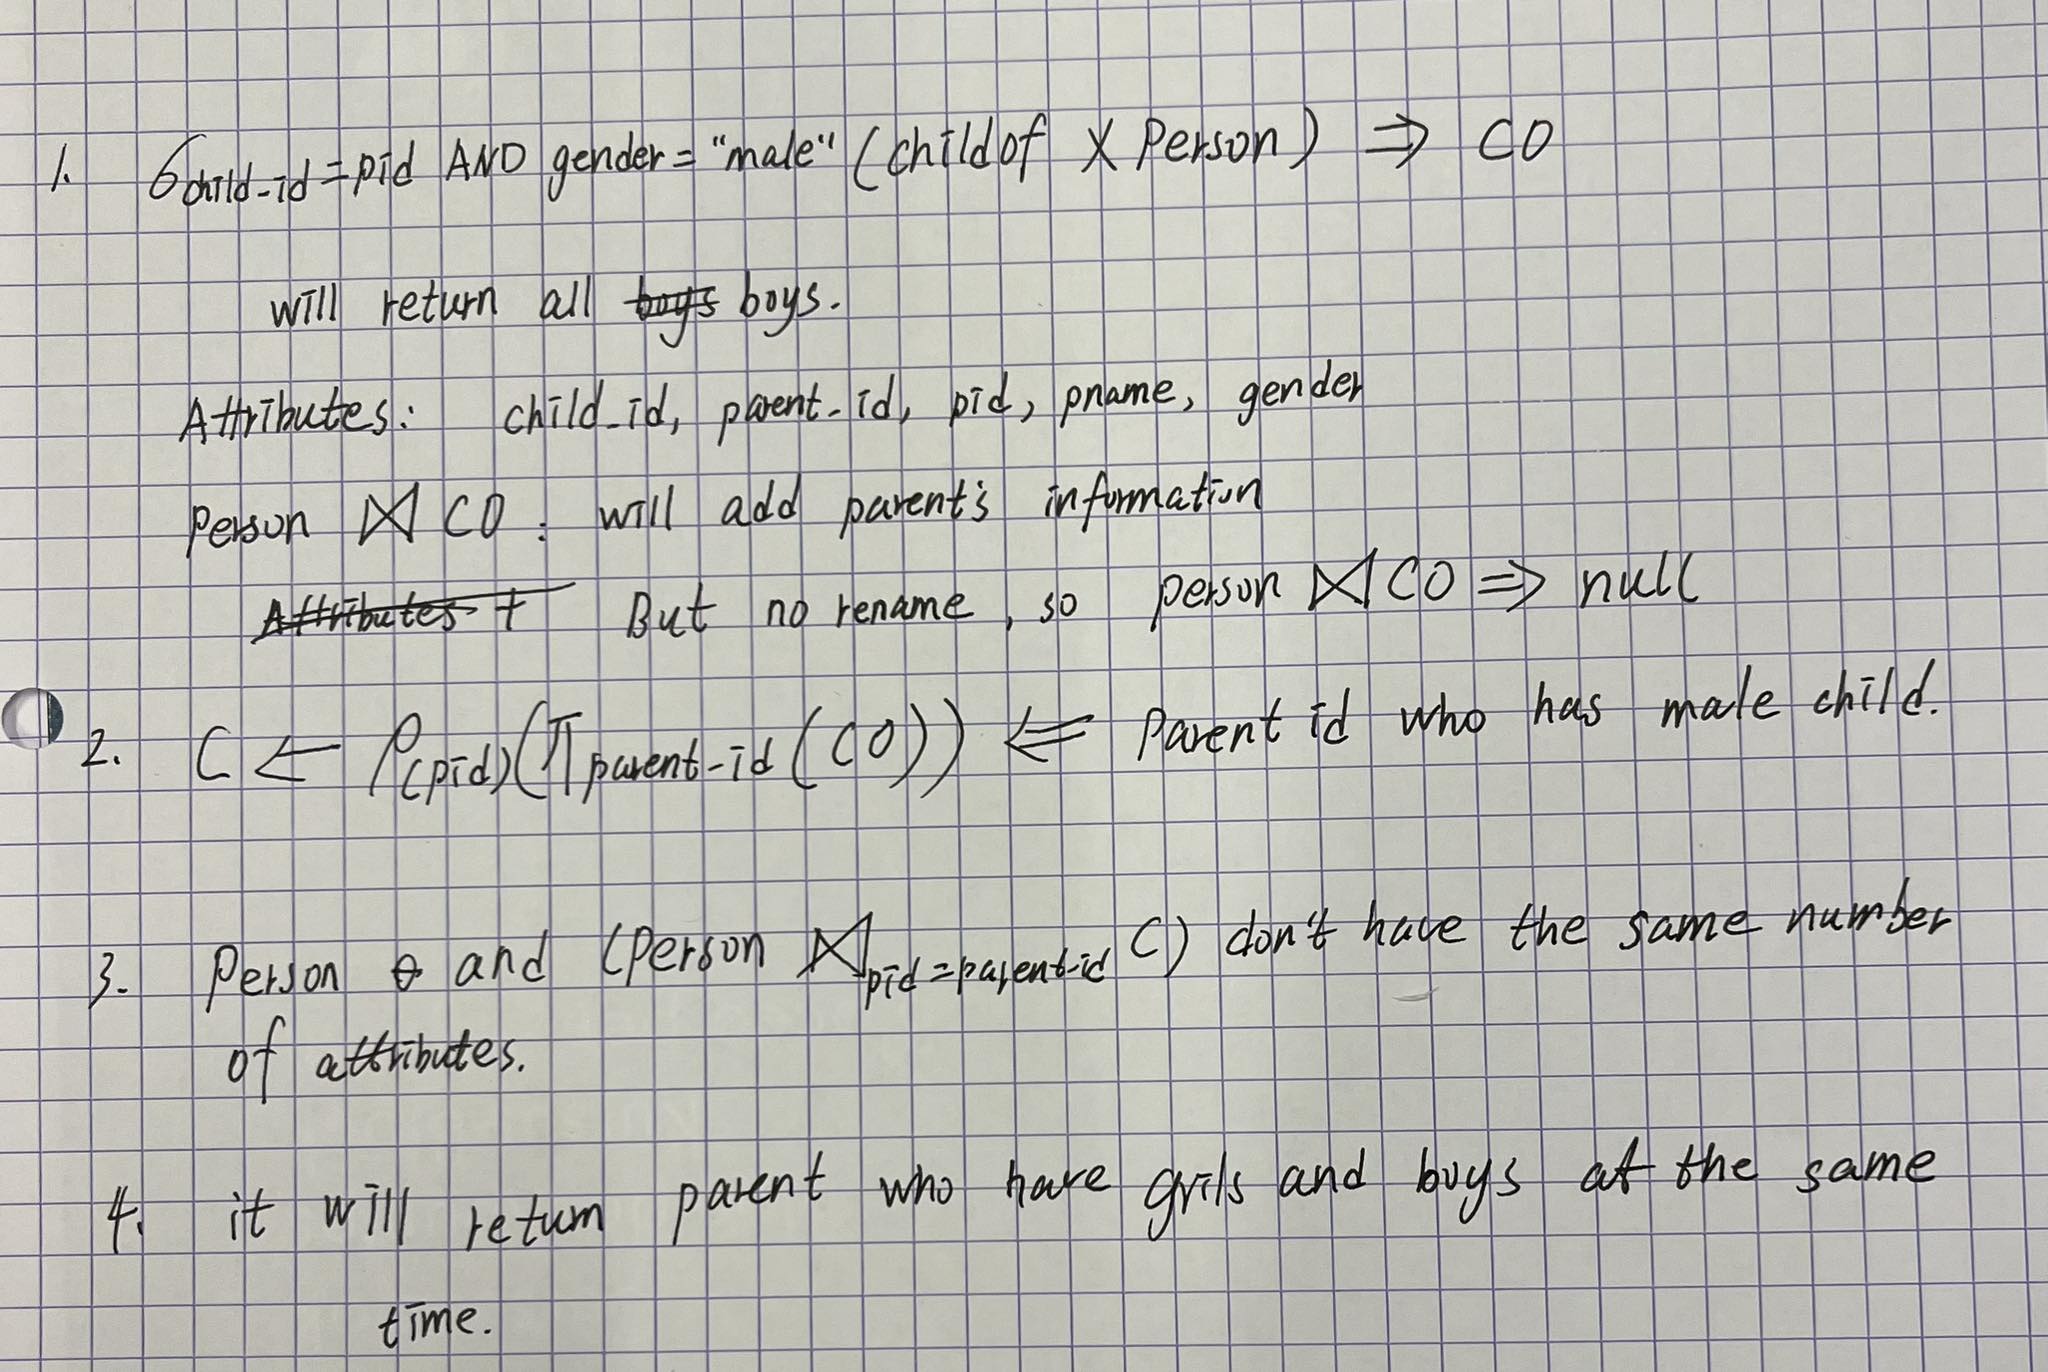 1. σchild-id=pid AND gender="male" (childof X Person) ⇒ CO
will return all boys boys.
Attributes: child-id, parent-id, pid, pname, gender
Person ⋈ CO: will add parent's information
Attributes + But no rename, so person ⋈ CO ⇒ null
2. C ← ρ(pid)(πparent-id(CO)) ⇐ Parent id who has male child.
3. Person θ and (Person ⋈pid=parent-id C) don't have the same number
of attributes.
4. it will return parent who have grils and boys at the same
time.